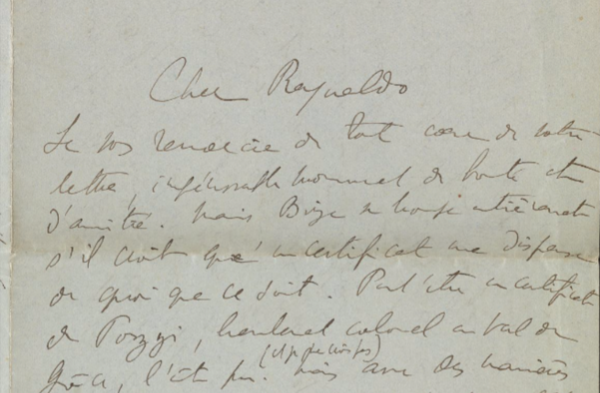 Cher Reynaldo
Je vs remercie de tout cœur de votre
lettre, impérissable monument de bonté et
d'amitié. Mais Bize se trompe entièrement
s'il croit qu'un certificat me dispense
de quoi que ce soit. Peut'être un certificat
de Pozzi, lieutenant colonel au Val de
(et je ne crois pas)
Grâce, l'eût pu. Mais avec des manières